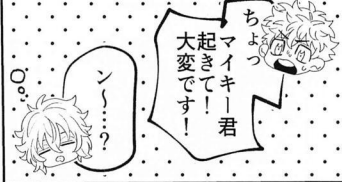 ちょっ
マイキー君
起きて！
大変です！
ン〜…？